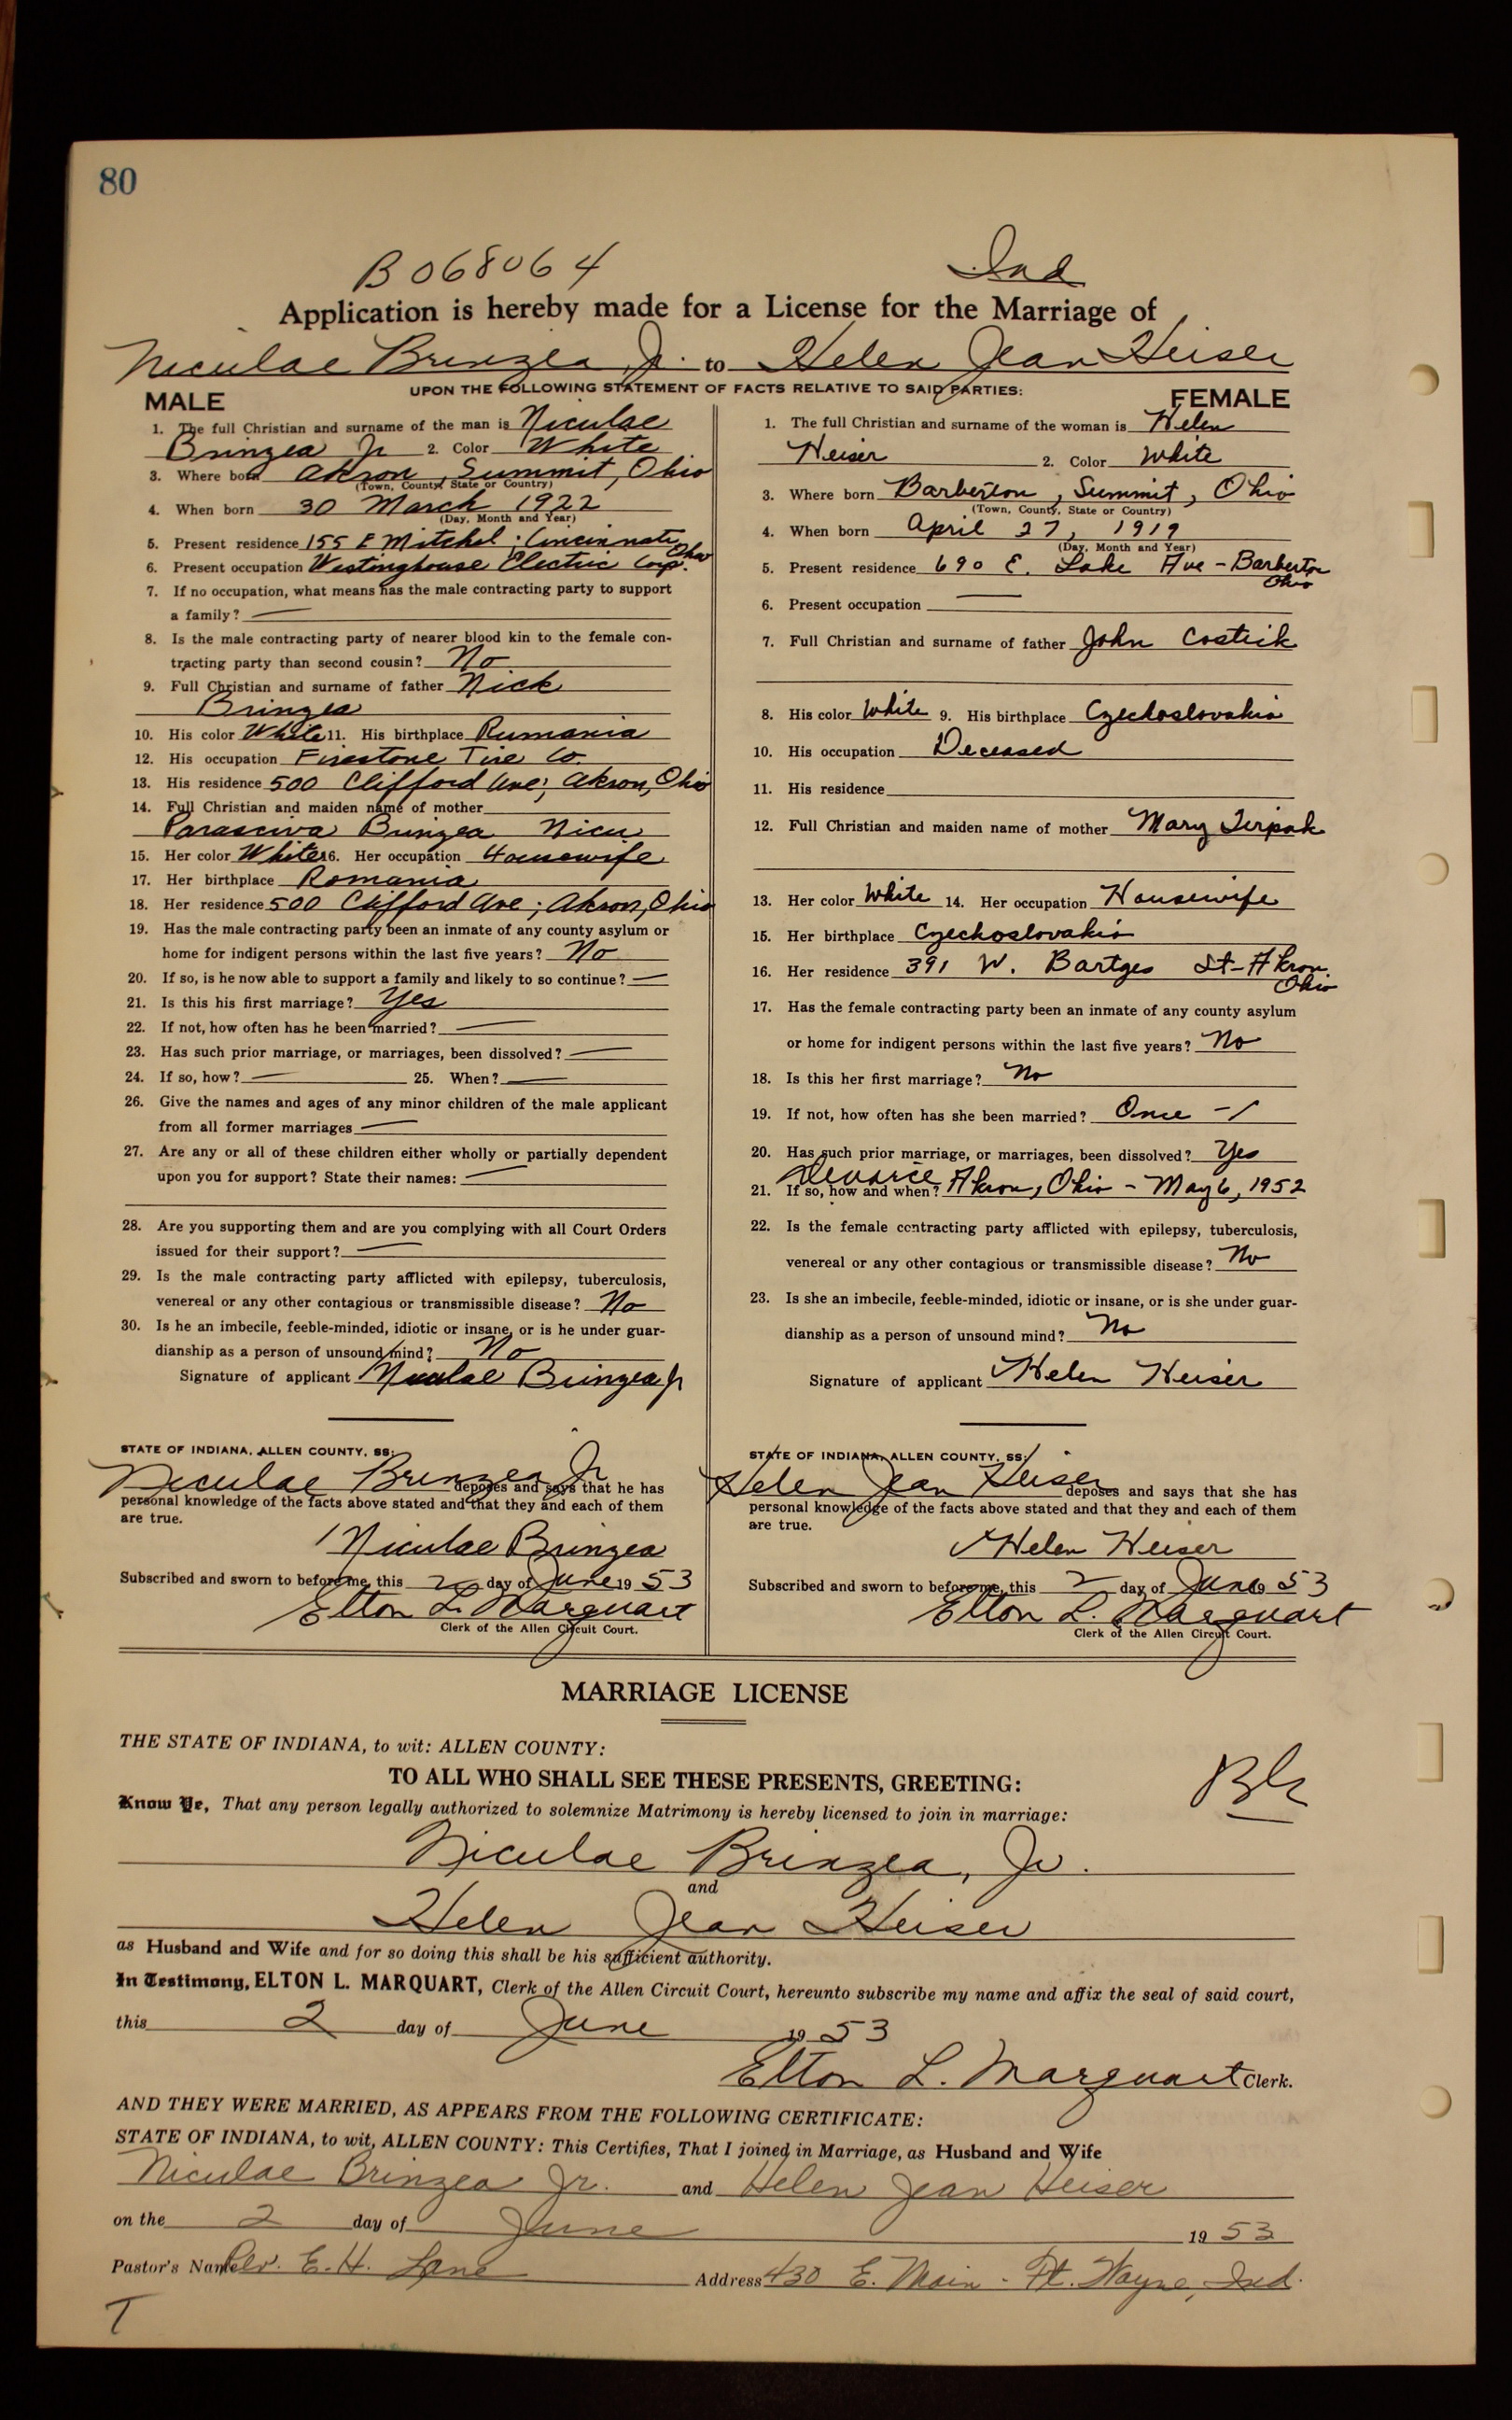 80
B068064 Ind
Application is hereby made for a License for the Marriage of
Niculae Brinzea, Jr. to Helen Jean Heiser
UPON THE FOLLOWING STATEMENT OF FACTS RELATIVE TO SAID PARTIES:
MALE
1. The full Christian and surname of the man is Niculae
Brinzea Jr 2. Color White
3. Where born Akron, Summit, Ohio
(Town, County, State or Country)
4. When born 30 March 1922
(Day, Month and Year)
5. Present residence 155 E Mitchel; Cincinnati, Ohio
6. Present occupation Westinghouse Electric Corp.
7. If no occupation, what means has the male contracting party to support
a family? —
8. Is the male contracting party of nearer blood kin to the female con-
tracting party than second cousin? No
9. Full Christian and surname of father Nick
Brinzea
10. His color White 11. His birthplace Rumania
12. His occupation Firestone Tire Co.
13. His residence 500 Clifford Ave; Akron, Ohio
14. Full Christian and maiden name of mother
Parasciva Brinzea Nicu
15. Her color White 16. Her occupation Housewife
17. Her birthplace Romania
18. Her residence 500 Clifford Ave; Akron, Ohio
19. Has the male contracting party been an inmate of any county asylum or
home for indigent persons within the last five years? No
20. If so, is he now able to support a family and likely to so continue? —
21. Is this his first marriage? Yes
22. If not, how often has he been married? —
23. Has such prior marriage, or marriages, been dissolved? —
24. If so, how? — 25. When? —
26. Give the names and ages of any minor children of the male applicant
from all former marriages —
27. Are any or all of these children either wholly or partially dependent
upon you for support? State their names: —
28. Are you supporting them and are you complying with all Court Orders
issued for their support? —
29. Is the male contracting party afflicted with epilepsy, tuberculosis,
venereal or any other contagious or transmissible disease? No
30. Is he an imbecile, feeble-minded, idiotic or insane, or is he under guar-
dianship as a person of unsound mind? No
Signature of applicant Niculae Brinzea Jr
STATE OF INDIANA, ALLEN COUNTY, SS:
Niculae Brinzea Jr deposes and says that he has
personal knowledge of the facts above stated and that they and each of them
are true.
Niculae Brinzea
Subscribed and sworn to before me, this 2 day of June 1953
Elton L. Marquart
Clerk of the Allen Circuit Court.
FEMALE
1. The full Christian and surname of the woman is Helen
Heiser 2. Color White
3. Where born Barberton, Summit, Ohio
(Town, County, State or Country)
4. When born April 27, 1919
(Day, Month and Year)
5. Present residence 690 E. Lake Ave - Barberton Ohio
6. Present occupation —
7. Full Christian and surname of father John Costrik
8. His color White 9. His birthplace Czechoslovakia
10. His occupation Deceased
11. His residence
12. Full Christian and maiden name of mother Mary Terpak
13. Her color White 14. Her occupation Housewife
15. Her birthplace Czechoslovakia
16. Her residence 391 W. Bartges St - Akron, Ohio
17. Has the female contracting party been an inmate of any county asylum
or home for indigent persons within the last five years? No
18. Is this her first marriage? No
19. If not, how often has she been married? Once - 1
20. Has such prior marriage, or marriages, been dissolved? Yes
21. If so, how and when? Divorce Akron, Ohio - May 6, 1952
22. Is the female contracting party afflicted with epilepsy, tuberculosis,
venereal or any other contagious or transmissible disease? No
23. Is she an imbecile, feeble-minded, idiotic or insane, or is she under guar-
dianship as a person of unsound mind? No
Signature of applicant Helen Heiser
STATE OF INDIANA, ALLEN COUNTY, SS:
Helen Jean Heiser deposes and says that she has
personal knowledge of the facts above stated and that they and each of them
are true.
Helen Heiser
Subscribed and sworn to before me, this 2 day of June 1953
Elton L. Marquart
Clerk of the Allen Circuit Court.
MARRIAGE LICENSE
THE STATE OF INDIANA, to wit: ALLEN COUNTY:
TO ALL WHO SHALL SEE THESE PRESENTS, GREETING:
Know Ye, That any person legally authorized to solemnize Matrimony is hereby licensed to join in marriage:
Niculae Brinzea, Jr.
and
Helen Jean Heiser
as Husband and Wife and for so doing this shall be his sufficient authority.
In Testimony, ELTON L. MARQUART, Clerk of the Allen Circuit Court, hereunto subscribe my name and affix the seal of said court,
this 2 day of June 1953
Elton L. Marquart Clerk.
AND THEY WERE MARRIED, AS APPEARS FROM THE FOLLOWING CERTIFICATE:
STATE OF INDIANA, to wit, ALLEN COUNTY: This Certifies, That I joined in Marriage, as Husband and Wife
Niculae Brinzea Jr. and Helen Jean Heiser
on the 2 day of June 1953
Pastor's Name Rev. E. H. Lane Address 430 E. Main - Ft. Wayne, Ind.
T